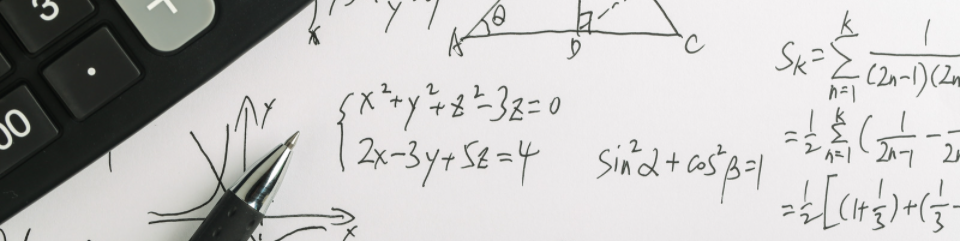 3
+
.
00
y
x
θ
A
D
C
x²+y²+z²-3z=0
2x-3y+5z=4
sin²α+cos²β=1
x
Sₖ=∑ₙ₌₁ᵏ 1/(2n-1)(2n
=1/2 ∑ₙ₌₁ᵏ (1/2n-1 - 
=1/2[(1+1/3)+(1/3-